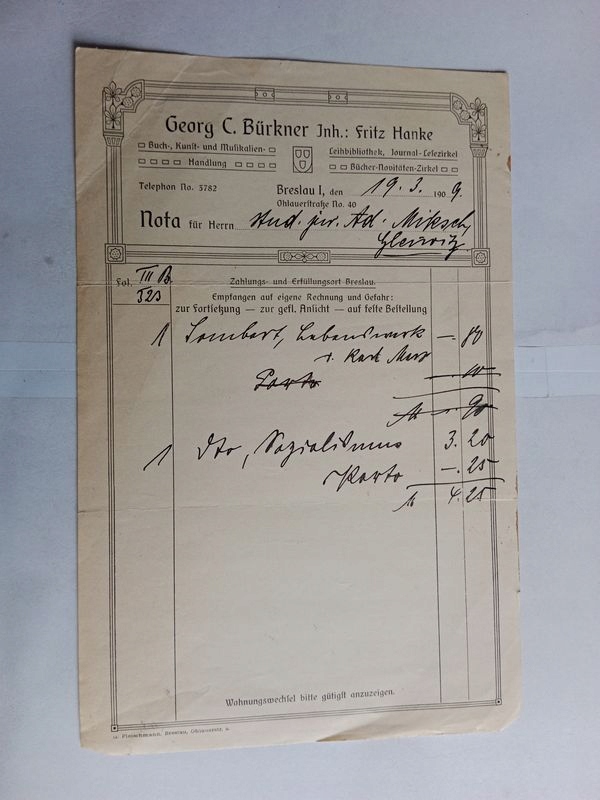 Georg C. Bürkner Inh.: Fritz Hanke
Buch-, Kunst- und Musikalien-
Handlung
Leihbibliothek, Journal-Lesezirkel
Bücher-Novitäten-Zirkel
Telephon No. 3782
Breslau I, den 19. 3. 1909.
Ohlauerstraße No. 40
Nota für Herrn stud. jur. Ad. Miksch,
Gleiwitz
Fol. III B.
323
Zahlungs- und Erfüllungsort Breslau.
Empfangen auf eigene Rechnung und Gefahr:
zur Fortsetzung — zur gefl. Ansicht — auf feste Bestellung
1 Sombart, Lebenswerk —. 80
v. Karl Marx
Porto —. 10
M —. 90
1 dto, Sozialismus 3. 20
Porto —. 25
M 4. 25
Wohnungswechsel bitte gütigst anzuzeigen.
Fleischmann, Breslau, Ohlauerstr.